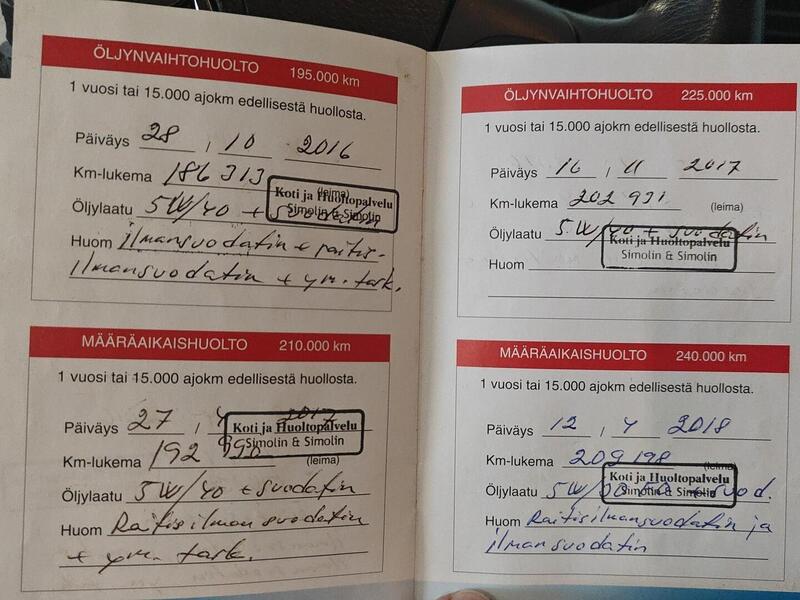 ÖLJYNVAIHTOHUOLTO 195.000 km
1 vuosi tai 15.000 ajokm edellisestä huollosta.
Päiväys 28 , 10 2016
Km-lukema 186 313
(leima)
Koti ja Huoltopalvelu
Simolin & Simolin
Öljylaatu 5W/40 + suodatin
Huom ilmansuodatin + raitis-
ilmansuodatin + ym. tark.
MÄÄRÄAIKAISHUOLTO 210.000 km
1 vuosi tai 15.000 ajokm edellisestä huollosta.
Päiväys 27 , 4 2017
Koti ja Huoltopalvelu
Simolin & Simolin
Km-lukema 192 990
(leima)
Öljylaatu 5W/40 + suodatin
Huom Raitisilman suodatin
+ ym. tark.
ÖLJYNVAIHTOHUOLTO 225.000 km
1 vuosi tai 15.000 ajokm edellisestä huollosta.
Päiväys 16 , 11 2017
Km-lukema 202 931
(leima)
Öljylaatu 5W/40 + suodatin
Koti ja Huoltopalvelu
Simolin & Simolin
Huom
MÄÄRÄAIKAISHUOLTO 240.000 km
1 vuosi tai 15.000 ajokm edellisestä huollosta.
Päiväys 12 , 4 2018
Km-lukema 209 198
(leima)
Koti ja Huoltopalvelu
Simolin & Simolin
Öljylaatu 5W/ + suod.
Huom Raitisilmansuodatin ja
ilmansuodatin